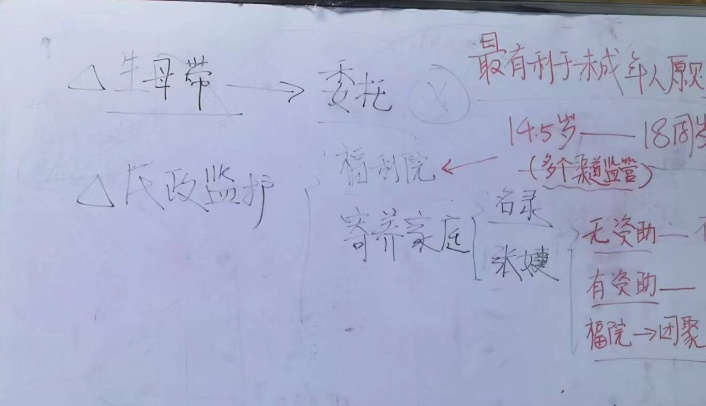 △生母带 → 委托 ⊗
最有利于未成年人原则
14.5岁 —— 18周岁
(多个渠道监管)
△民政监护
福利院 ←
寄养家庭
名录
张婕
无资助 —
有资助 —
福院→团聚